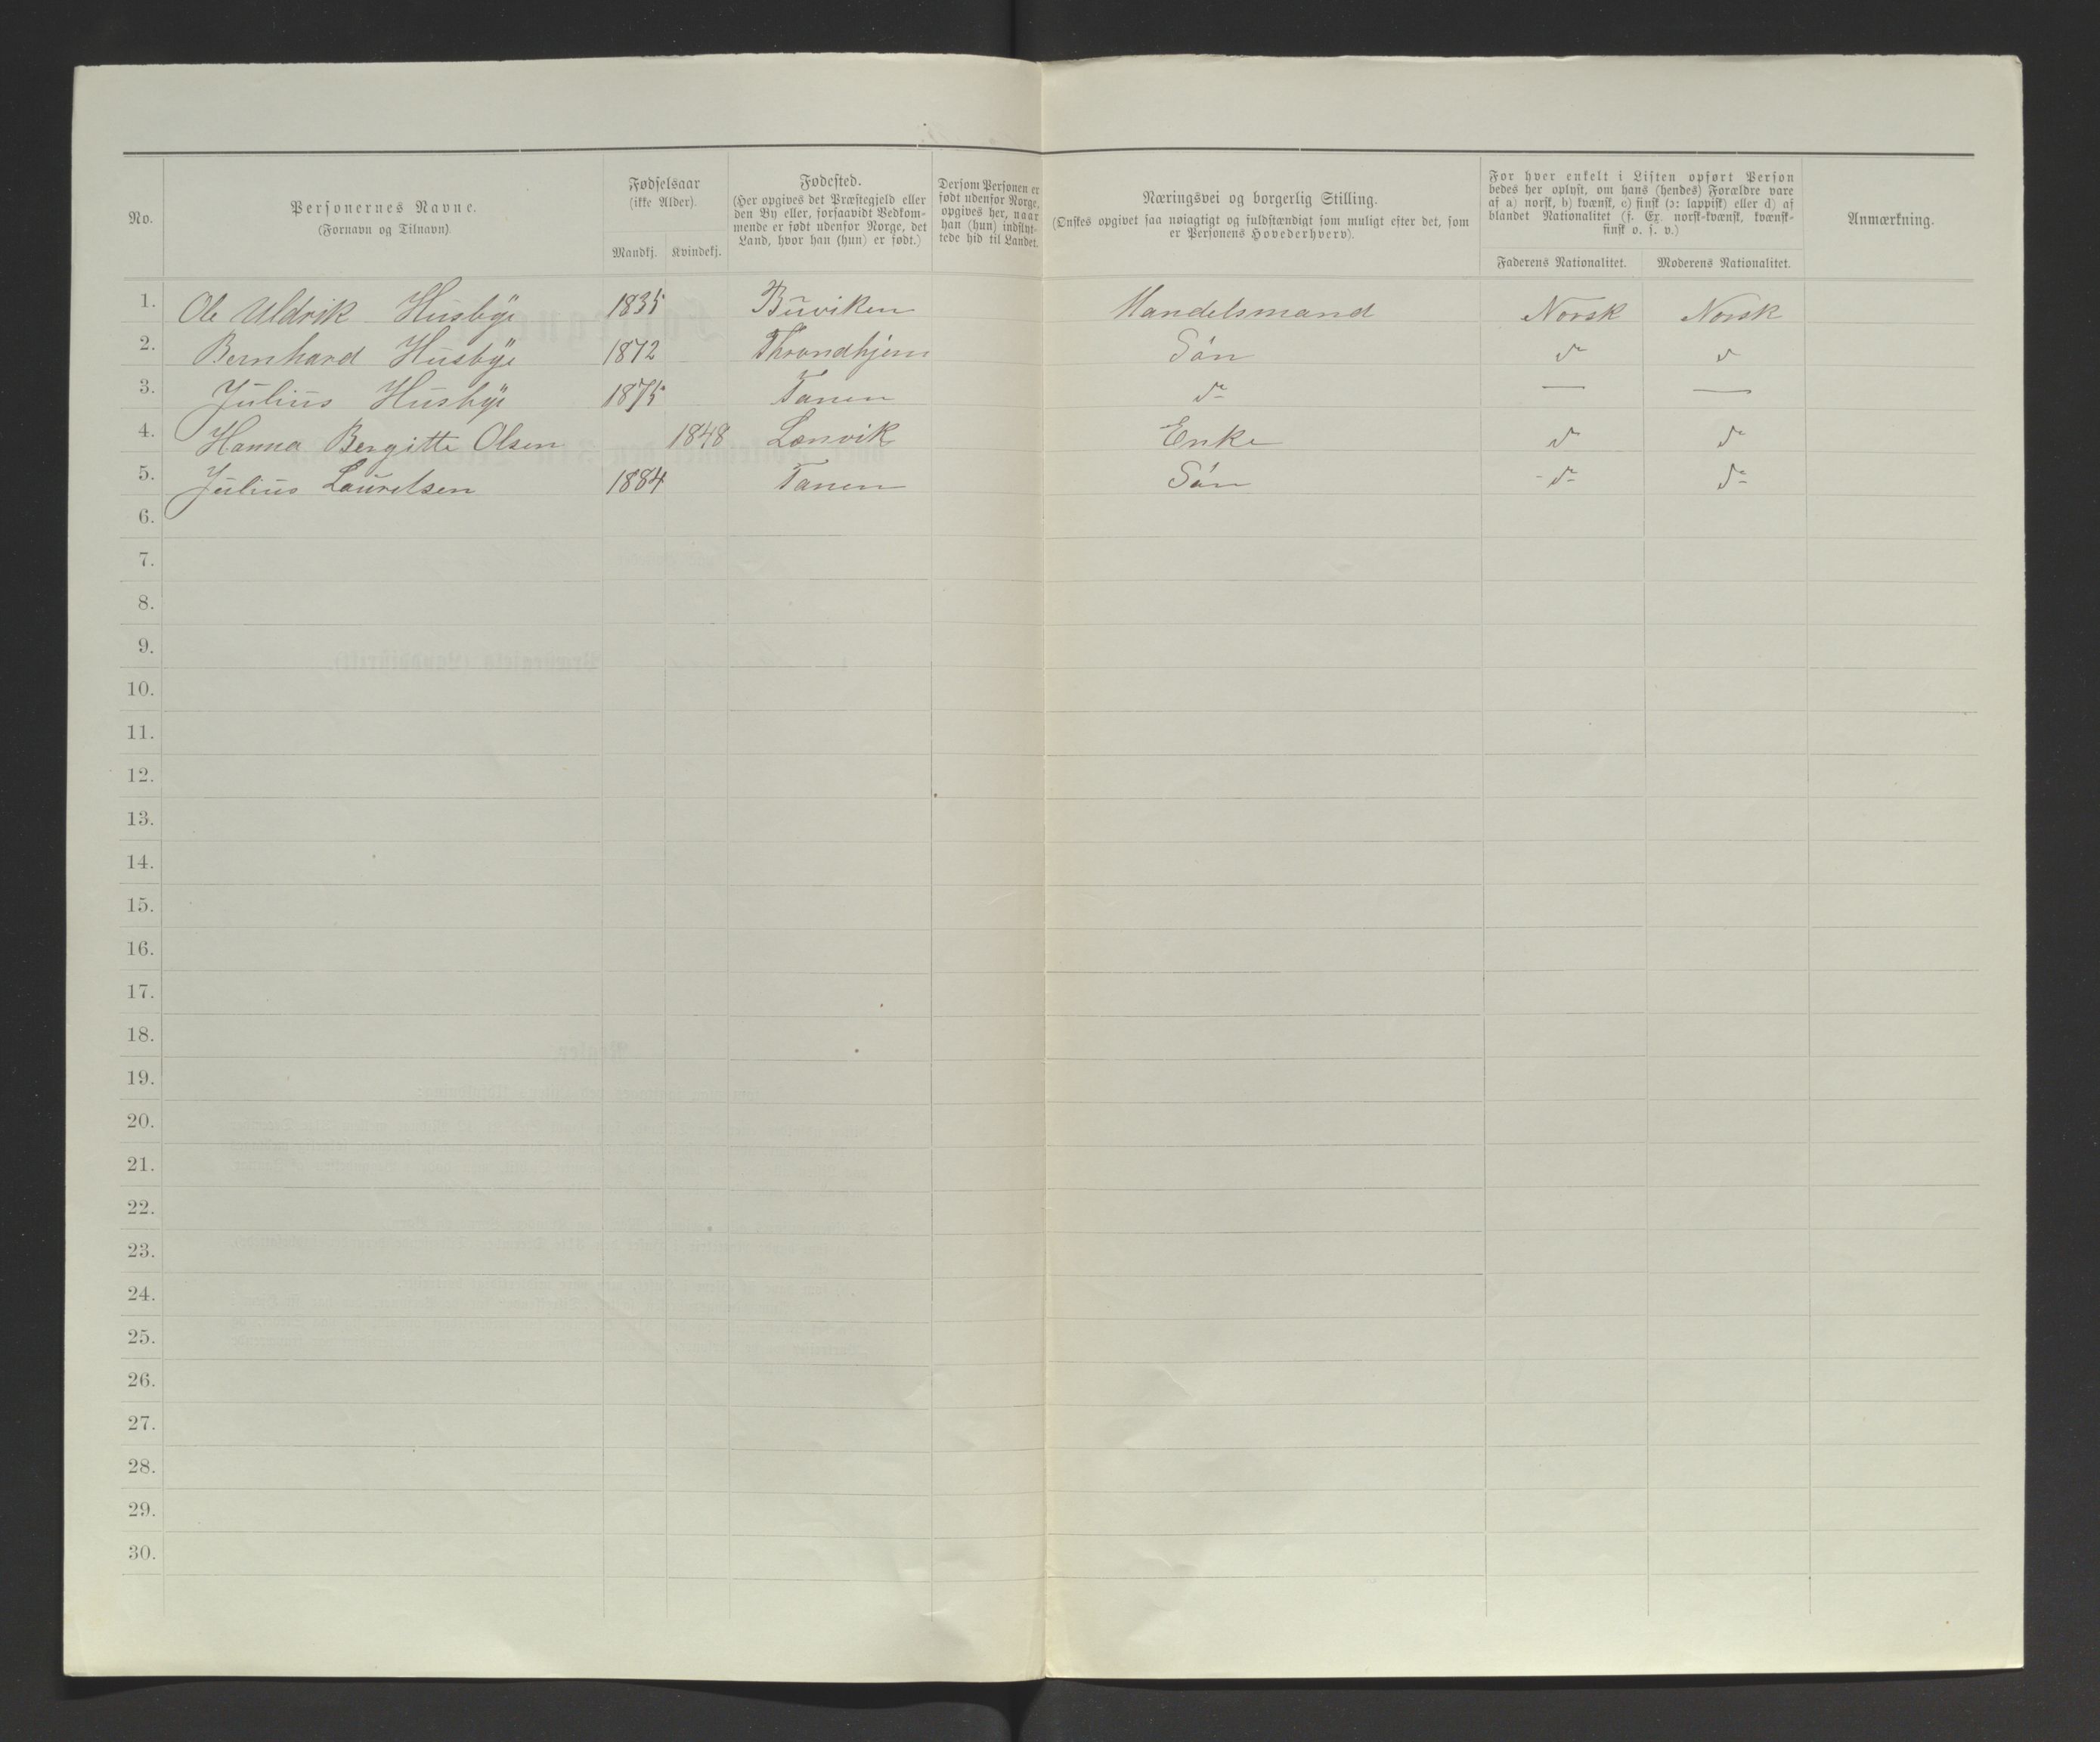 No.
Personernes Navne.
(Fornavn og Tilnavn).
Fødselsaar
(ikke Alder).
Mandkj. Kvindekj.
Fødested.
(Her opgives det Præstegjeld eller
den By eller, forsaavidt Vedkom-
mende er født udenfor Norge, det
Land, hvor han (hun) er født.)
Dersom Personen er
født udenfor Norge,
opgives her, naar
han (hun) indflyt-
tede hid til Landet.
Næringsvei og borgerlig Stilling.
(Ønskes opgivet saa nøiagtigt og fuldstændigt som muligt efter det, som
er Personens Hovederhverv).
For hver enkelt i Listen opført Person
bedes her oplyst, om hans (hendes) Forældre vare
af a) norsk, b) kvænsk, c) finsk (ɔ: lappisk) eller d) af
blandet Nationalitet (f. Ex. norsk-kvænsk, kvænsk-
finsk o. s. v.)
Faderens Nationalitet. Moderens Nationalitet.
Anmærkning.
1. Ole Uldrik Husbye 1835 Buviken Handelsmand Norsk Norsk
2. Bernhard Husbye 1872 Throndhjem Søn do do
3. Julius Husbye 1875 Tanen do — —
4. Hanna Bergitte Olsen 1848 Lenvik Enke do do
5. Julius Lauritsen 1884 Tanen Søn do do
6.
7.
8.
9.
10.
11.
12.
13.
14.
15.
16.
17.
18.
19.
20.
21.
22.
23.
24.
25.
26.
27.
28.
29.
30.